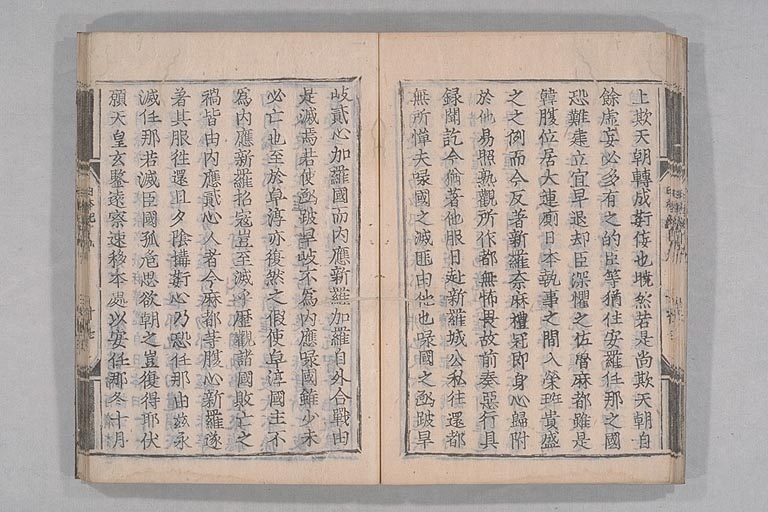 上欺天朝轉成姧佞也曉然若是尚欺天朝自
餘虛妄必多有之的臣等猶住安羅任那之國
恐難建立宜早退却臣深懼之佐魯麻都雖是
韓腹位居大連廁日本執事之間入榮班貴盛
之之例而今反著新羅奈麻禮冠即身心歸附
於他易照熟觀所作都無怖畏故前奏惡行具
録聞訖今猶著他服日赴新羅城公私往還都
無所憚夫㖨國之滅匪由他也㖨國之函跛旱
岐貳心加羅國而内應新羅加羅自外合戰由
是滅焉若使函跛旱岐不爲内應㖨國雖少未
必亡也至於卓淳亦復然之假使卓淳國主不
爲内應新羅招寇豈至滅乎歴觀諸國敗亡之
禍皆由内應貳心人者今麻都等腹心新羅遂
著其服往還旦夕陰搆姧心乃恐任那由兹永
滅任那若滅臣國孤危思欲朝之豈復得耶伏
願天皇玄鑒遠察速移本處以安任那冬十月